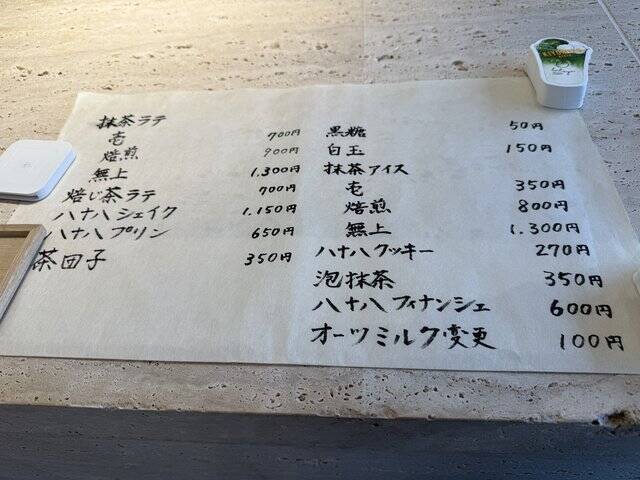 抹茶ラテ
壱 700円
焙煎 900円
無上 1.300円
焙じ茶ラテ 700円
八十八シェイク 1.150円
八十八プリン 650円
茶団子 350円
黒糖 50円
白玉 150円
抹茶アイス
壱 350円
焙煎 800円
無上 1.300円
八十八クッキー 270円
泡抹茶 350円
八十八フィナンシェ 600円
オーツミルク変更 100円